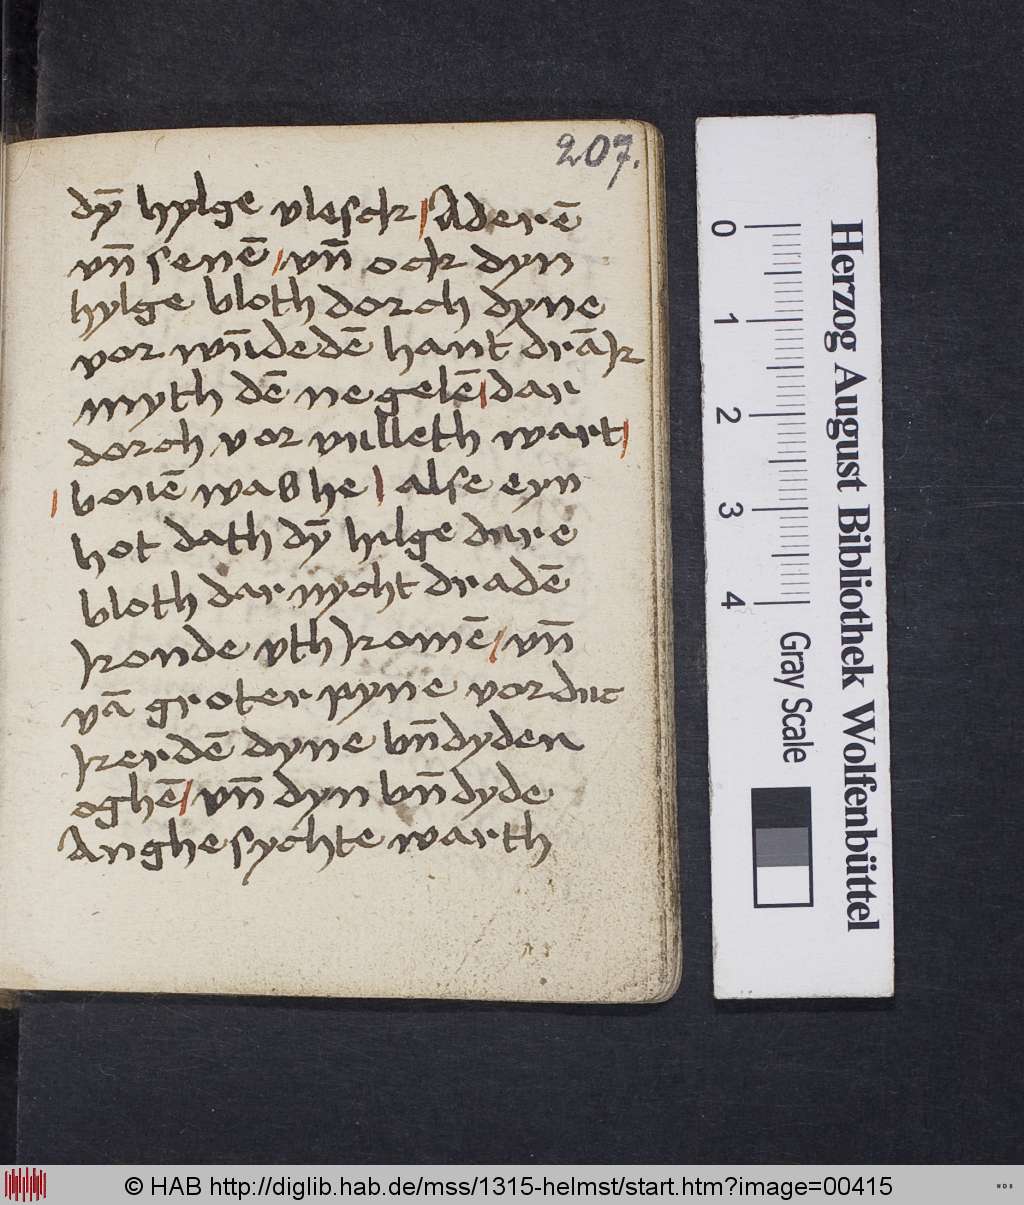 207.
dȳ hylge vlesck / Aderē
vn̄ senē / vn̄ ock dyn
hylge bloth dorch dyne
vor wn̄dedē hant drāk
myth dē negelē / dar
dorch vor vulleth wart /
/ bouē was he / alse eyn
hot dath dȳ hilge dure
bloth dar nycht dradē
konde vth komē / vn̄
vā groter pyne vorduc
kerdē dyne bn̄dyden
oghē / vn̄ dyn bn̄dyde
Anghesychte warth
0 1 2 3 4
Gray Scale
Herzog August Bibliothek Wolfenbüttel
© HAB http://diglib.hab.de/mss/1315-helmst/start.htm?image=00415